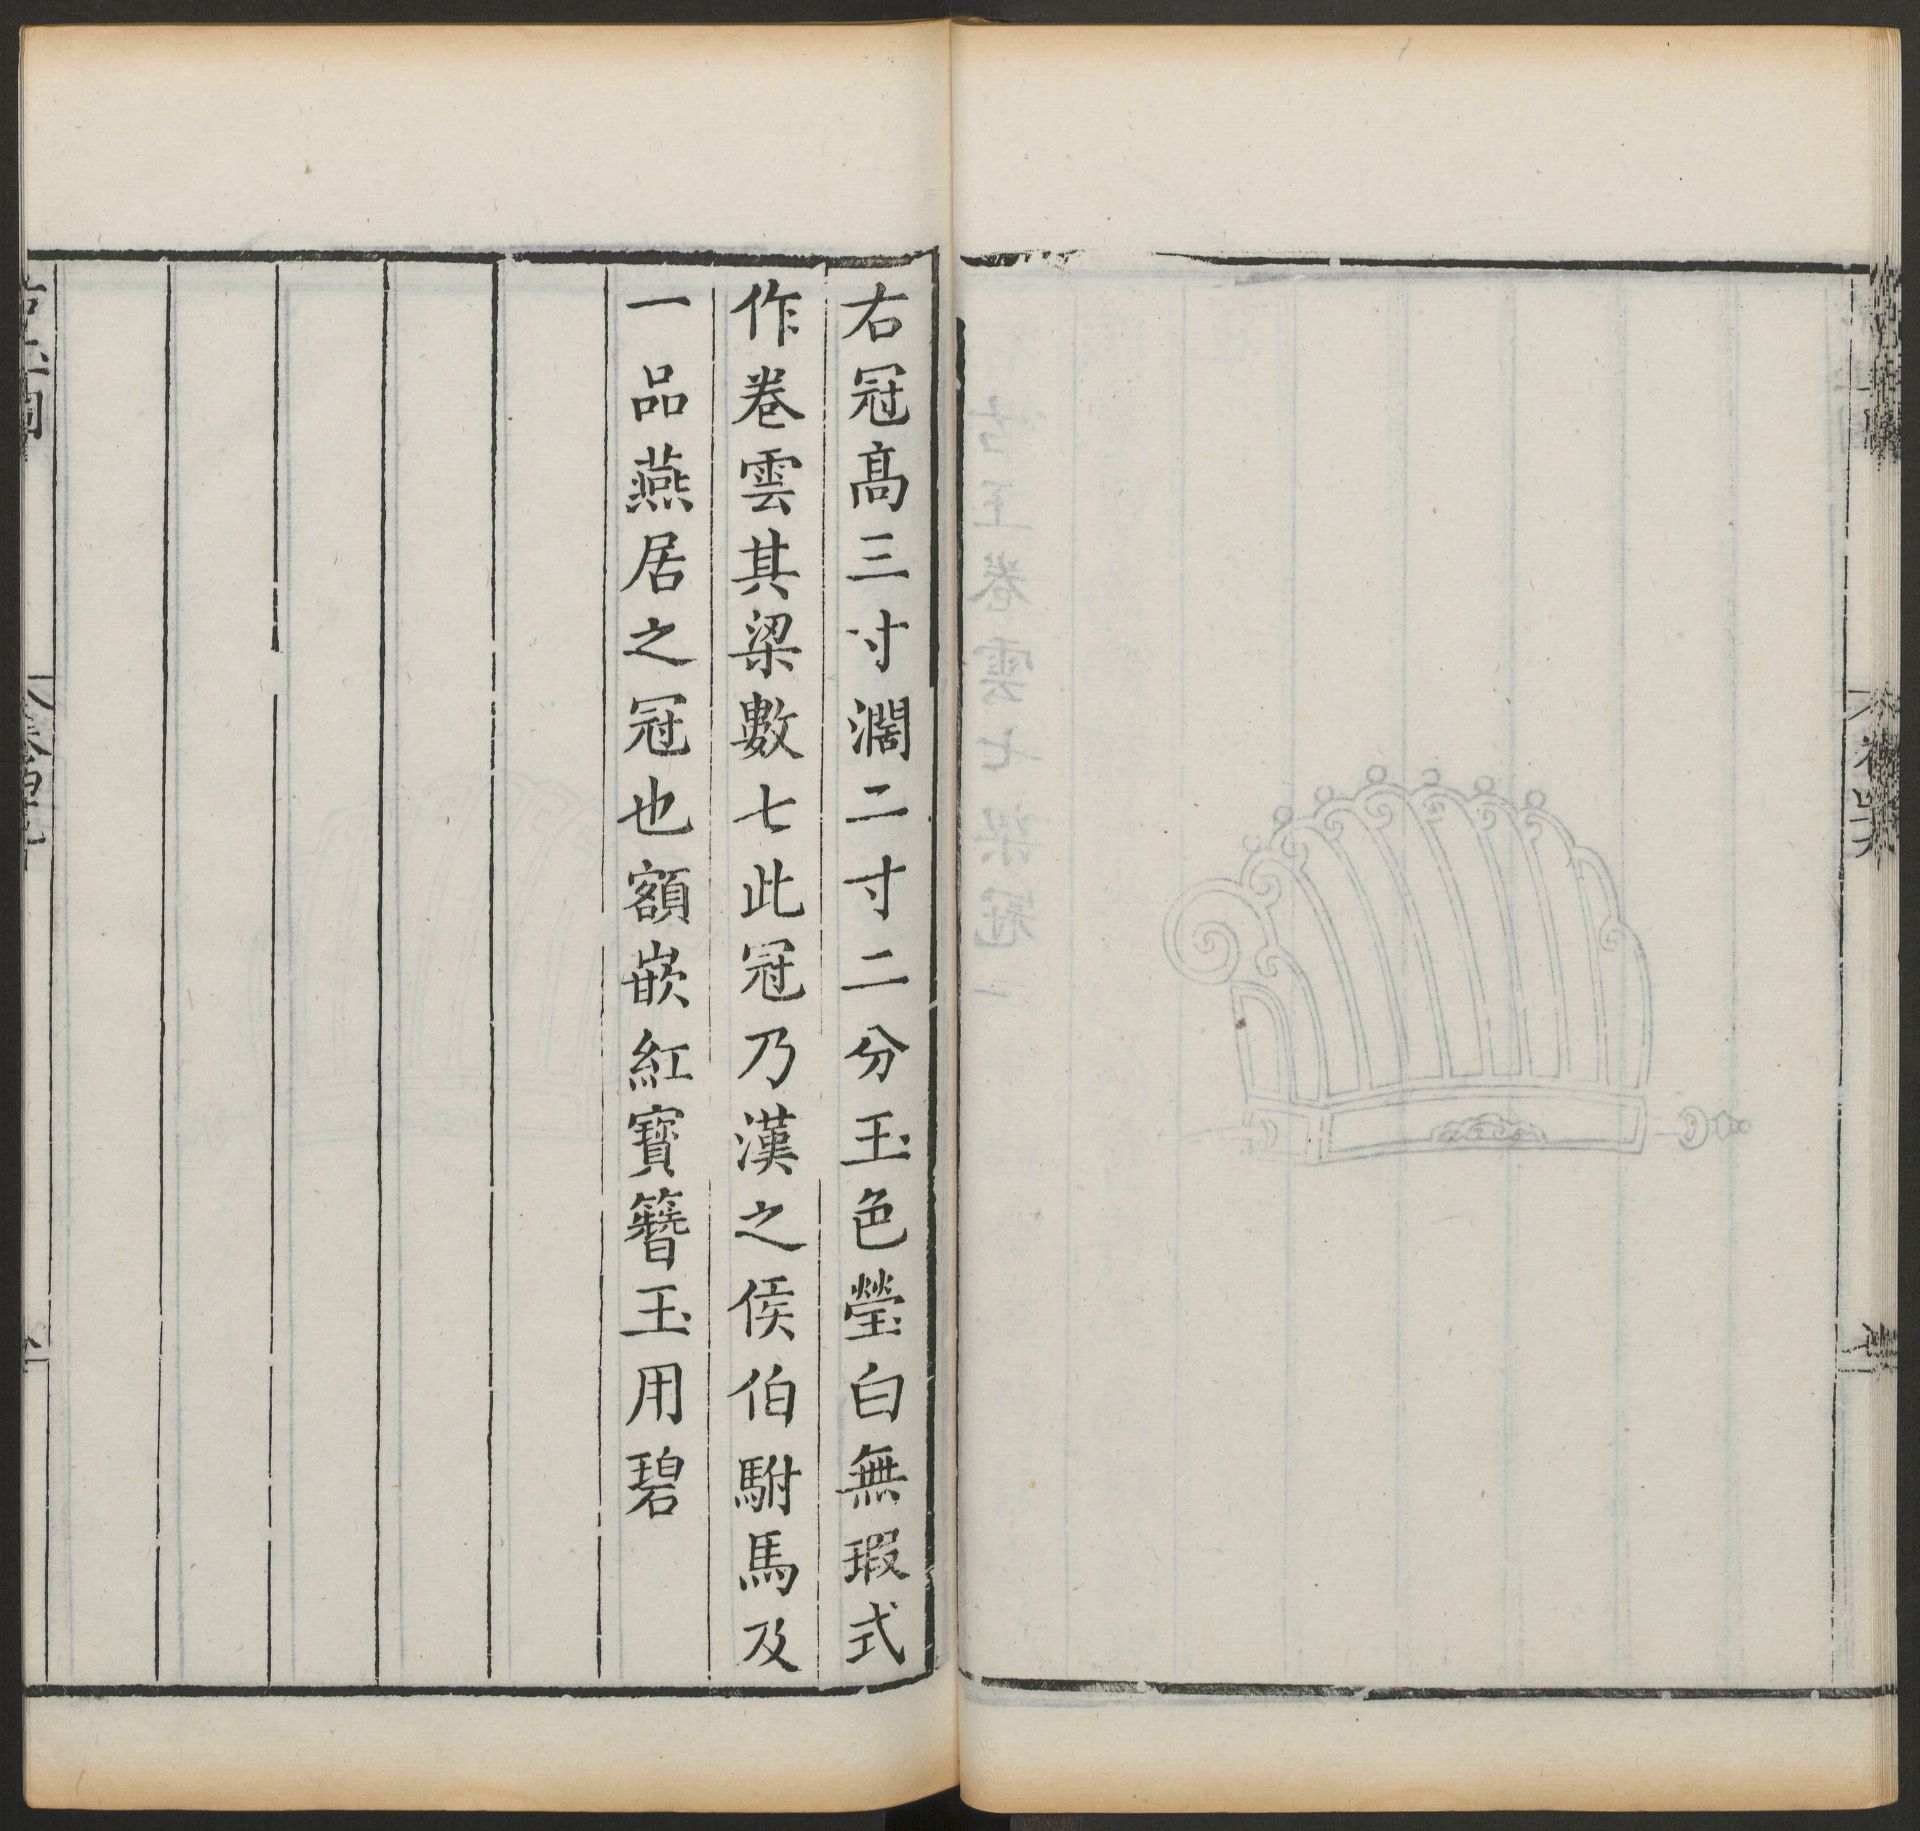 右冠髙三寸濶二寸二分玉色瑩白無瑕式
作卷雲其梁數七此冠乃漢之侯伯駙馬及
一品燕居之冠也額嵌紅寳簪玉用碧